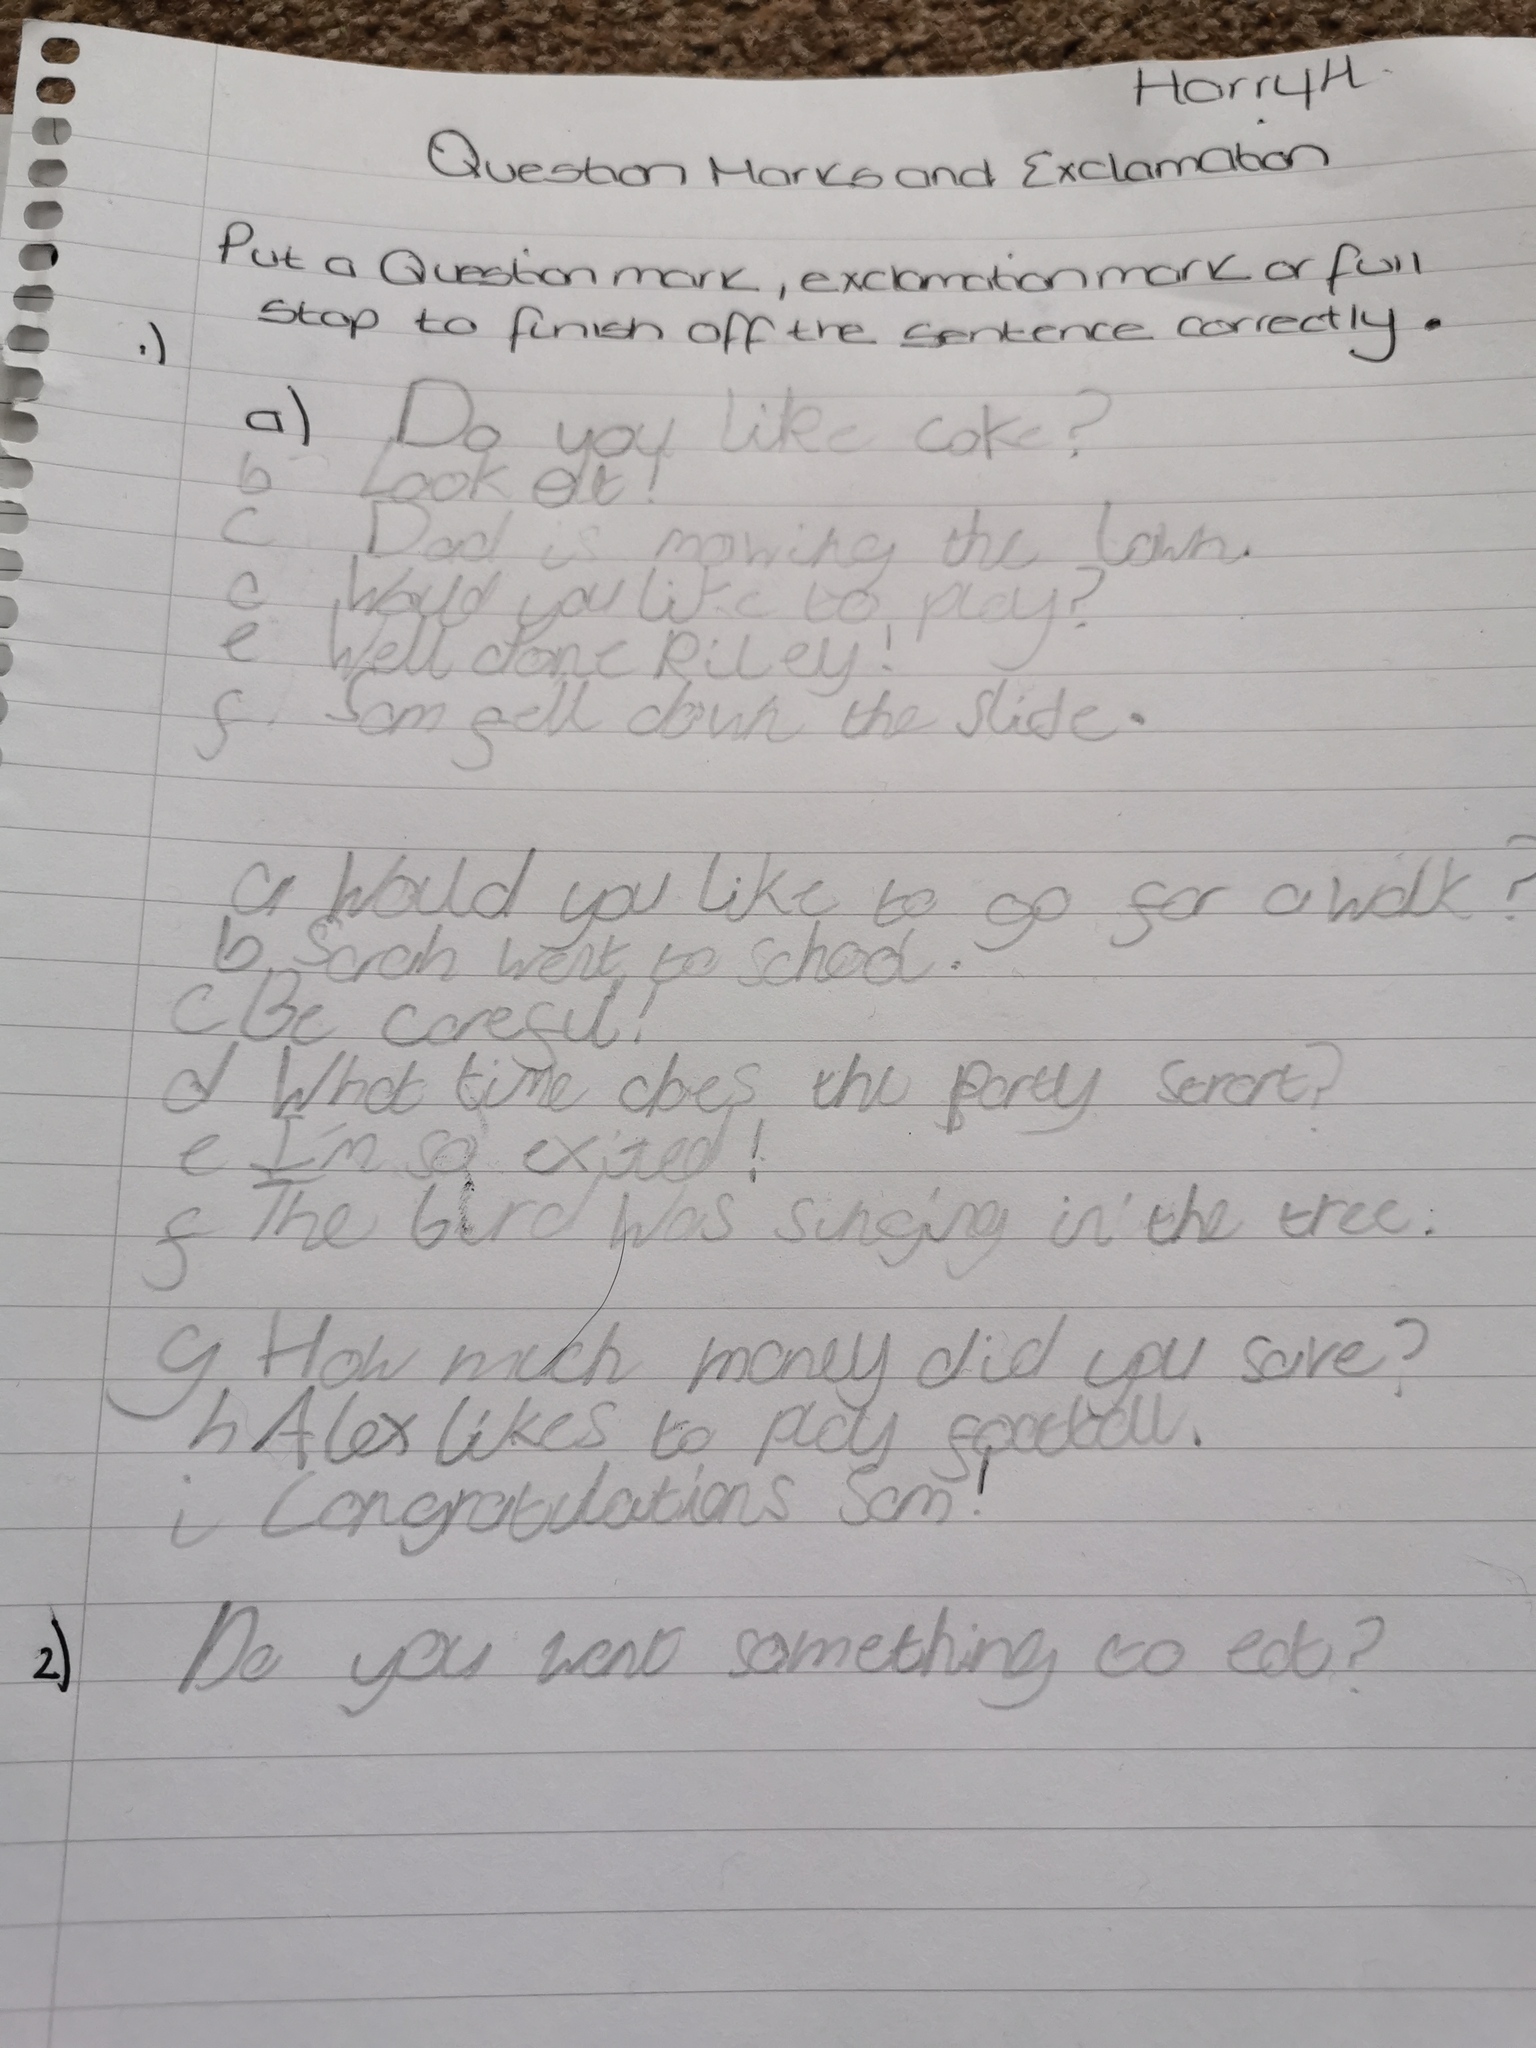 Harry H.
Question Marks and Exclamation
Put a Question mark, exclamation mark or full
stop to finish off the sentence correctly.
1)
a) Do you like coke?
b Look out!
c Dad is mowing the lawn.
d Would you like to play?
e Well done Riley!
f Sam fell down the slide.
a Would you like to go for a walk?
b Sarah went to school.
c Be careful!
d What time does the party start?
e I'm so exited!
f The bird was singing in the tree.
g How much money did you save?
h Alex likes to play football.
i Congratulations Sam!
2) Do you want something to eat?